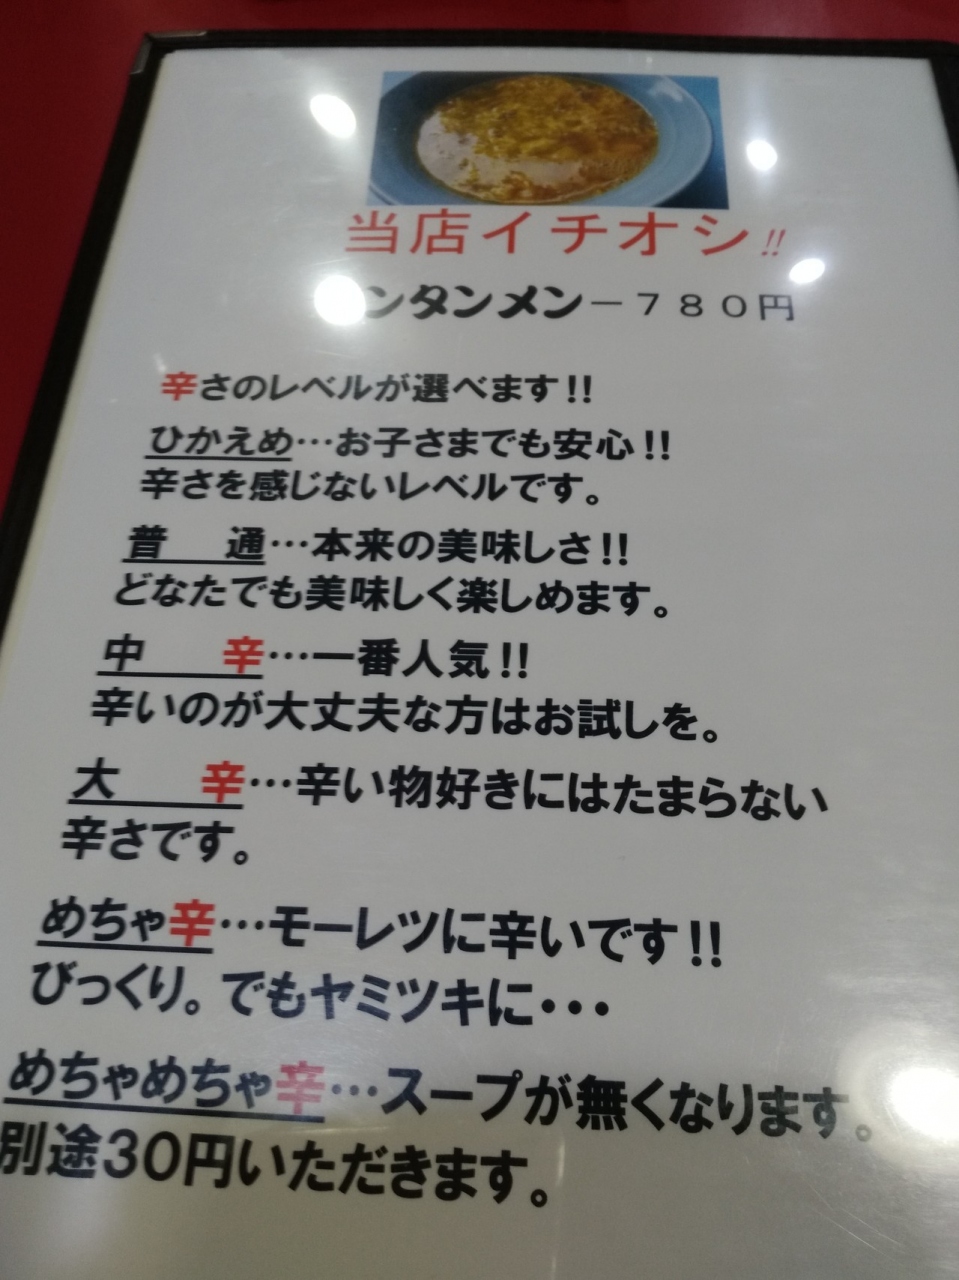 当店イチオシ!!
ンタンメン－７８０円
辛さのレベルが選べます!!
ひかえめ…お子さまでも安心!!
辛さを感じないレベルです。
普　通…本来の美味しさ!!
どなたでも美味しく楽しめます。
中　辛…一番人気!!
辛いのが大丈夫な方はお試しを。
大　辛…辛い物好きにはたまらない
辛さです。
めちゃ辛…モーレツに辛いです!!
びっくり。でもヤミツキに・・・
めちゃめちゃ辛…スープが無くなります。
別途３０円いただきます。